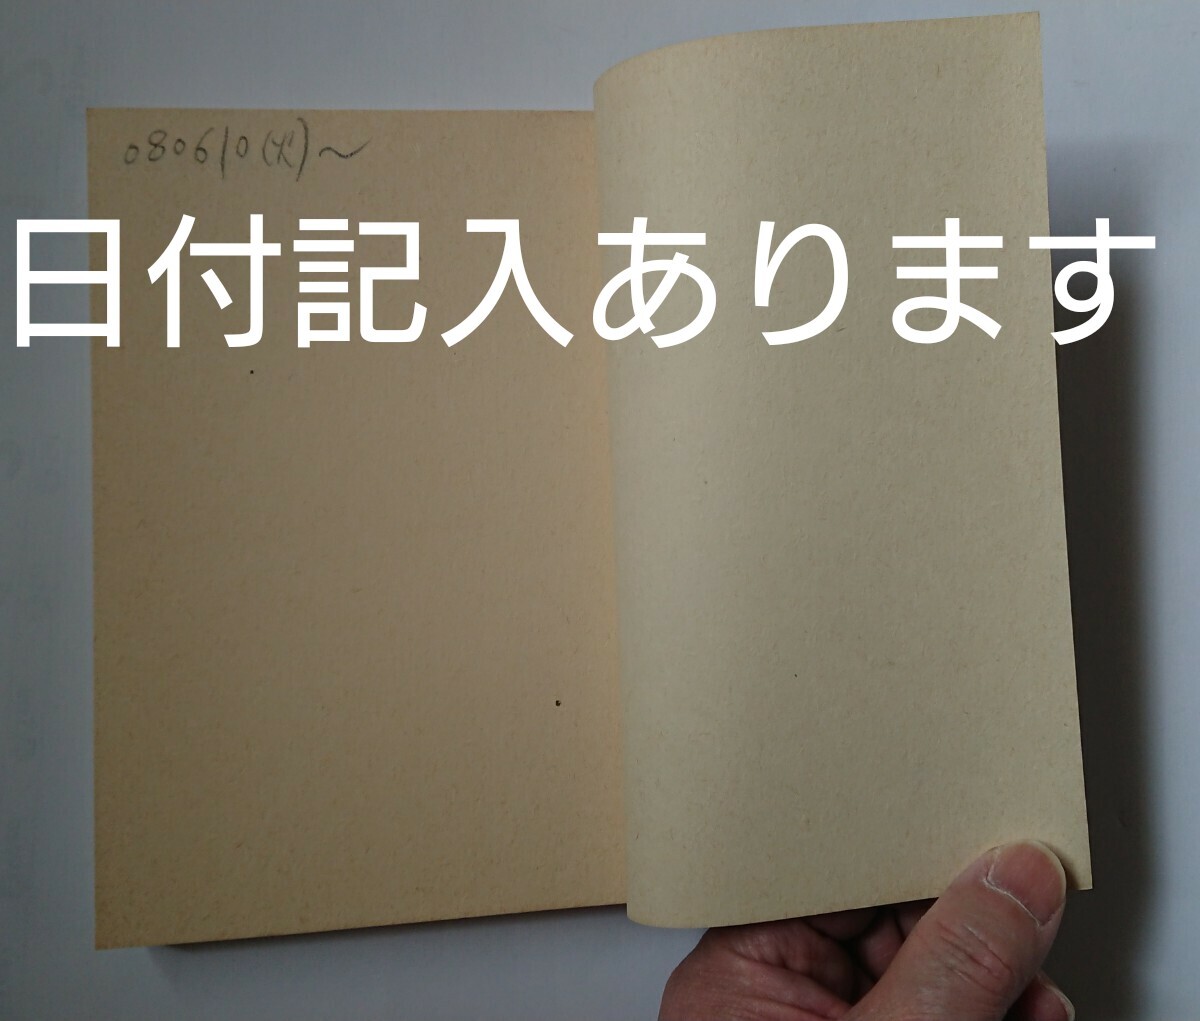 080610(火)～
日付記入あります